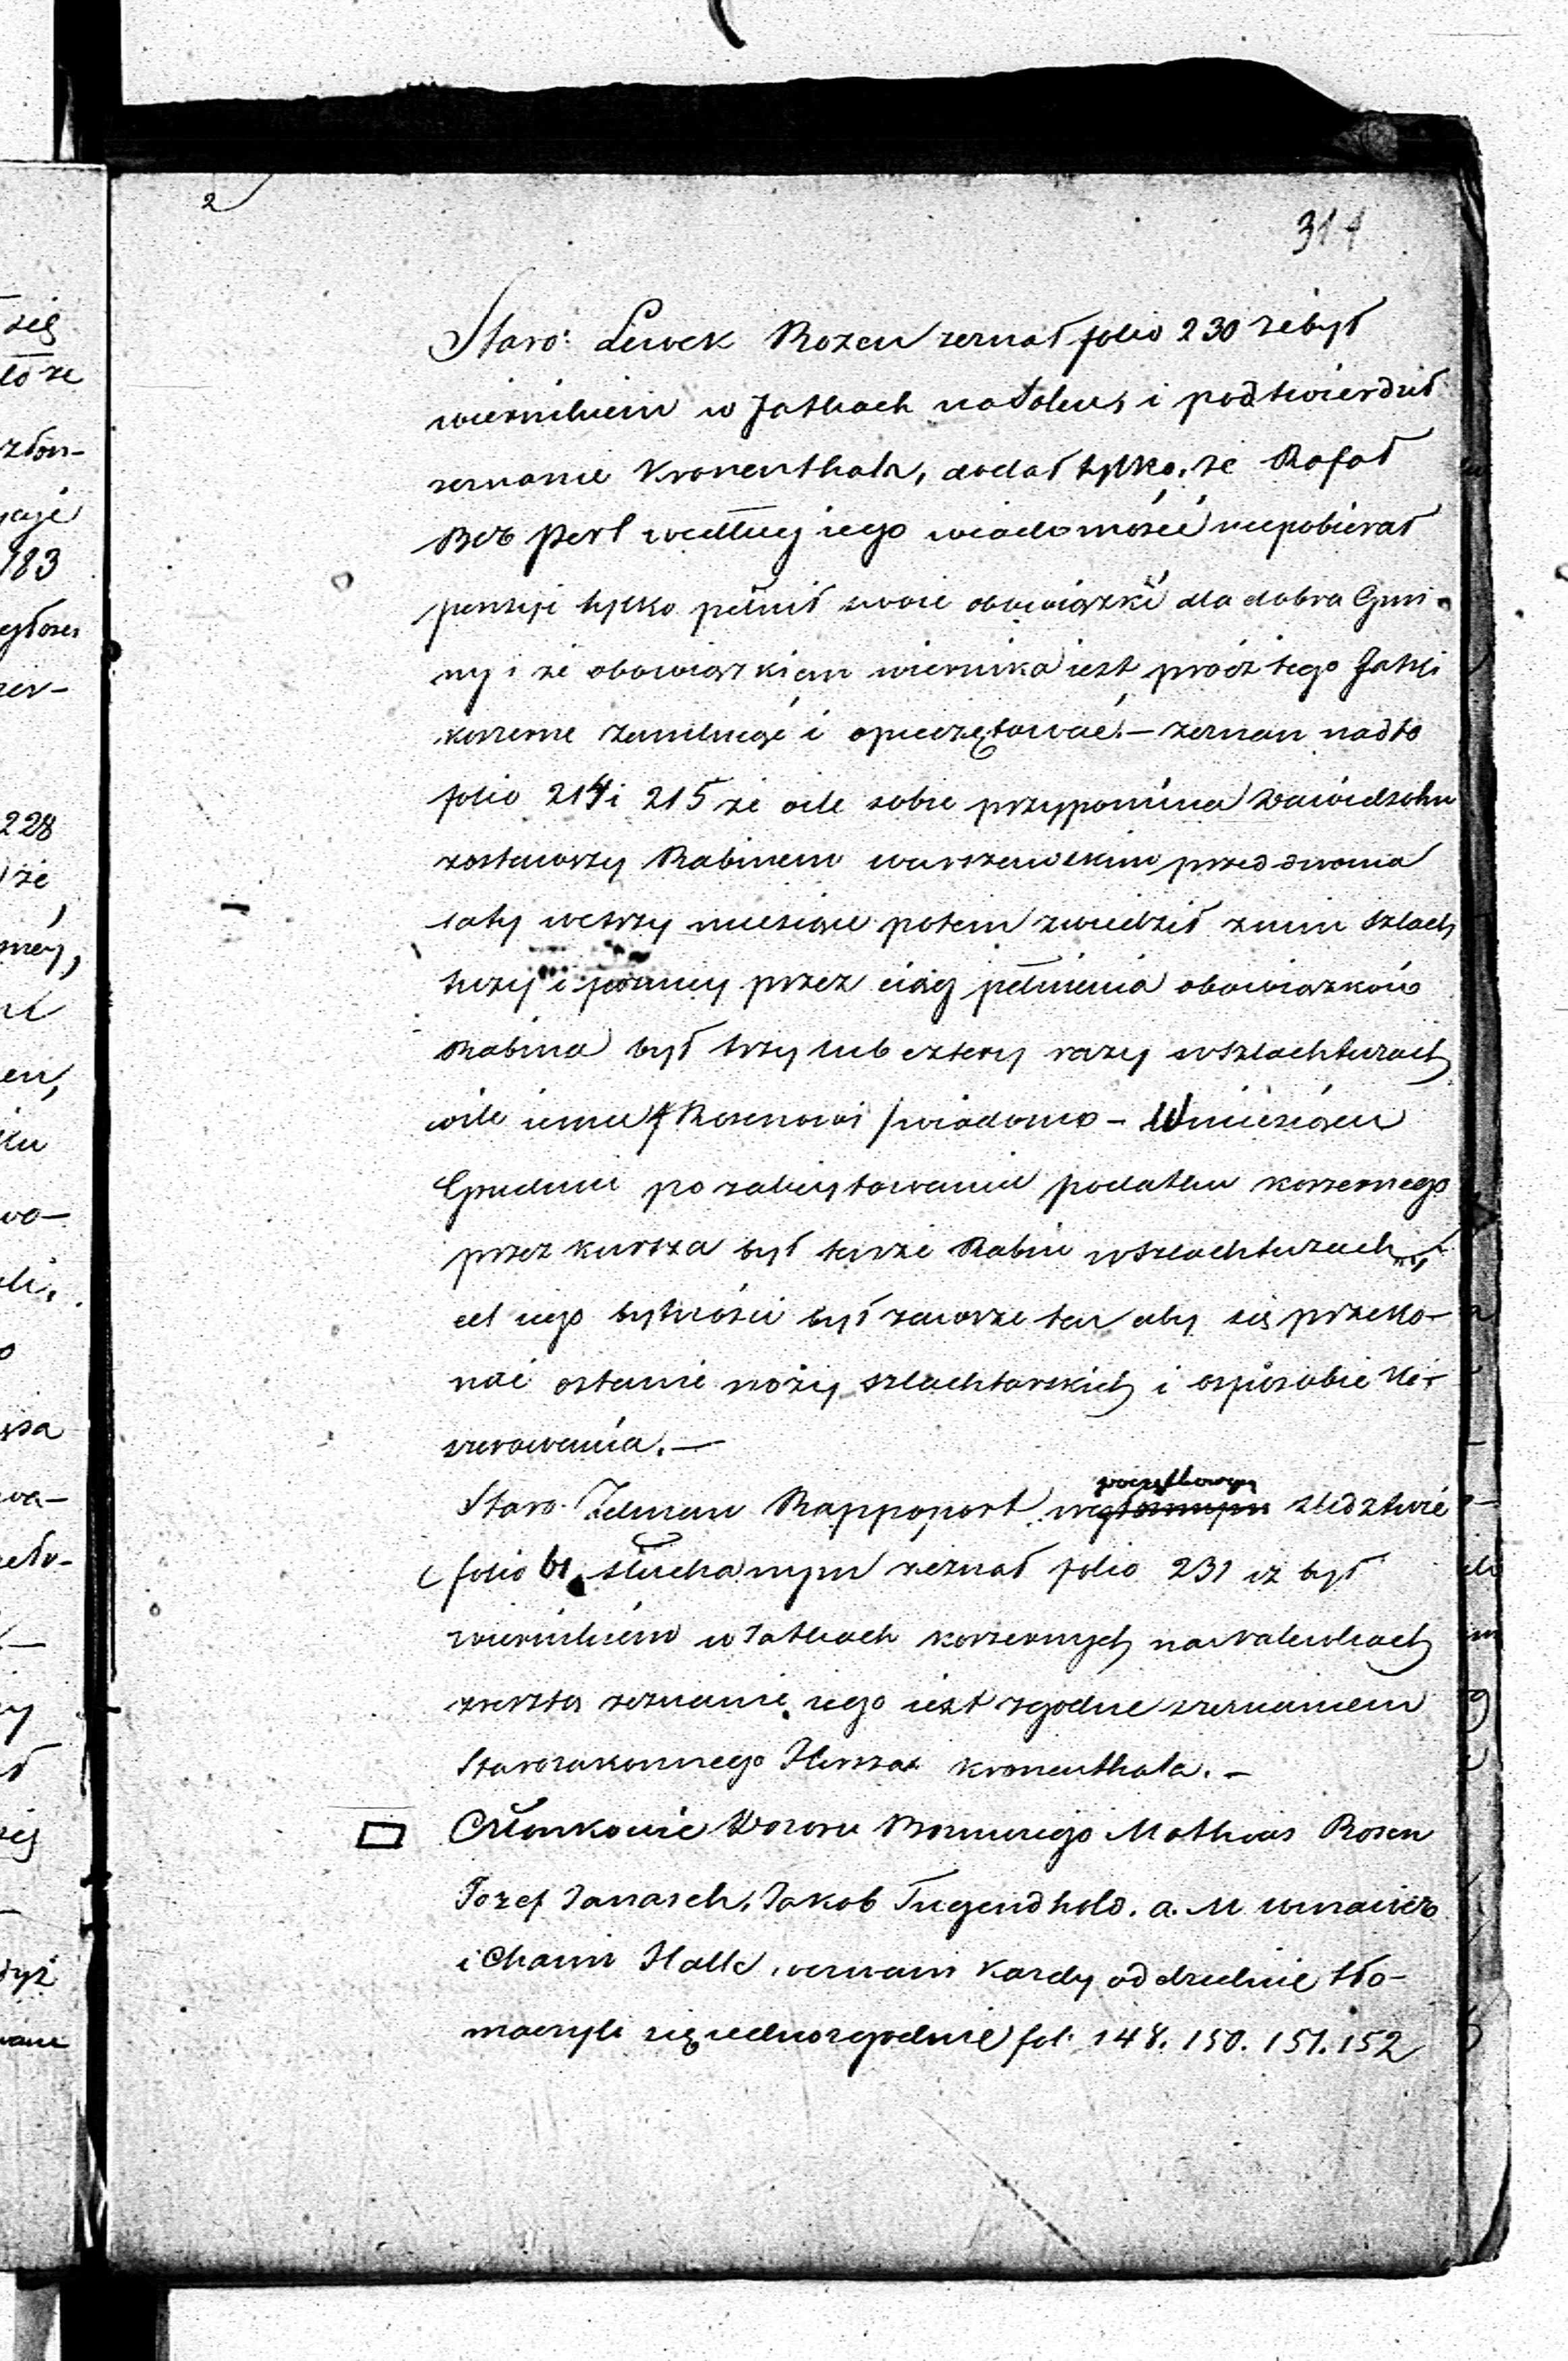 2
314
Staro: Lewek Rozen zeznał folio 230 że był
wiernikiem w Jatkach na Solcu, i podtwierdził
zeznanie Kronenthala, dodał tylko, że Rafał
Ber Perl według iego wiadomości niepobierał
pensyi tylko pełnił swoie obowiązki dla dobra Gmi-
ny i że obowiązkiem wiernika iest prócz tego Jatki
koszerne zamknąć i opieczętować. – zeznan nadto
folio 214 i 215 że oile sobie przypomina Dawidsohn
zostawszy Rabinem warszawskim przed dwoma
laty wetrzy miesiące potem zwiedził z nim szlach
tuzy i poźniey przez ciąg pełnienia obowiązków
Rabina był trzy lub cztery razy w szlachtuzach
oile iemu / Rosenowi / wiadomo – W miesiącu
Grudniu po zalicytowaniu podatku koszernego
przez Kursza był także Rabin w szlachtuzach,
cel iego bytności był zawsze ten aby się przeko-
nać ostanie noży szlachtarskich i osposobie ko-
szerowania. –
Staro. Zelman Rappoport w początkowym śledztwie
folio 61 słuchanym zeznał folio 231 iż był
wiernikiem w Jatkach koszernych na Nalewkach
zresztą zeznanie iego iest zgodne z zeznaniem
Starozakonnego Hersza Kronenthala. –
Członkowie Dozoru Bożniczego Mathias Rosen
Jozef Janasch, Jakob Tugendhold. a. M
i Chaim Halle, kazdy oddzielnie tło-
maczyli się iednozgodnie fol: 148. 150. 151. 152
się
183
228
że